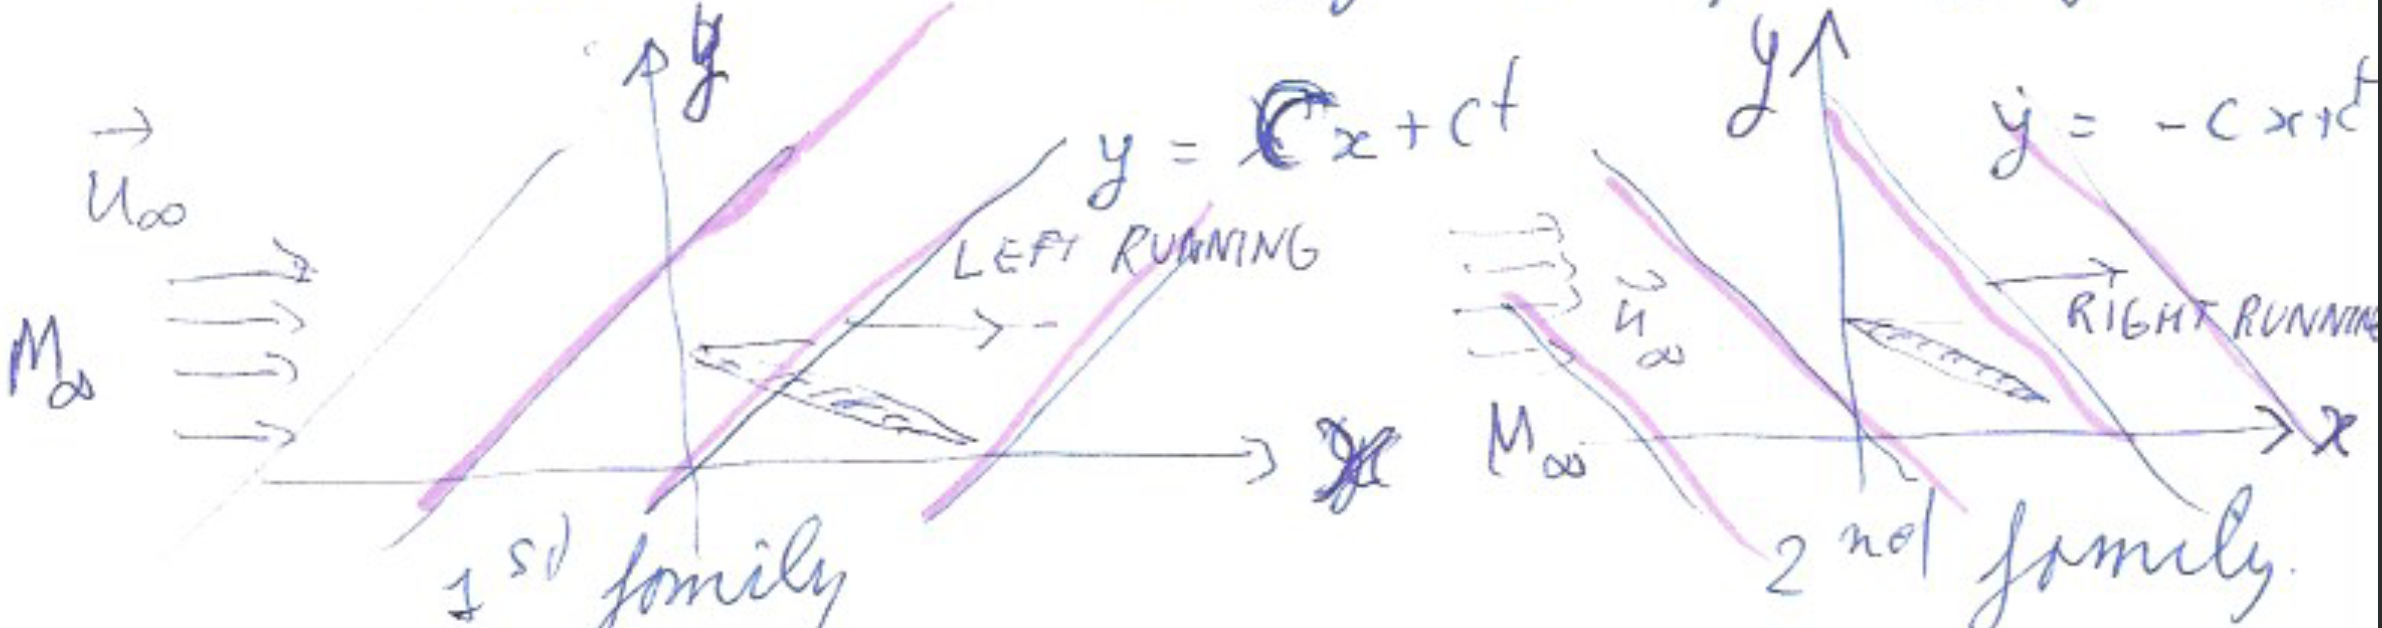 y
y = Cx + ct
u∞
LEFT RUNNING
M∞
1st family
y
y = -Cx + ct
u∞
RIGHT RUNNING
M∞
x
2nd family.